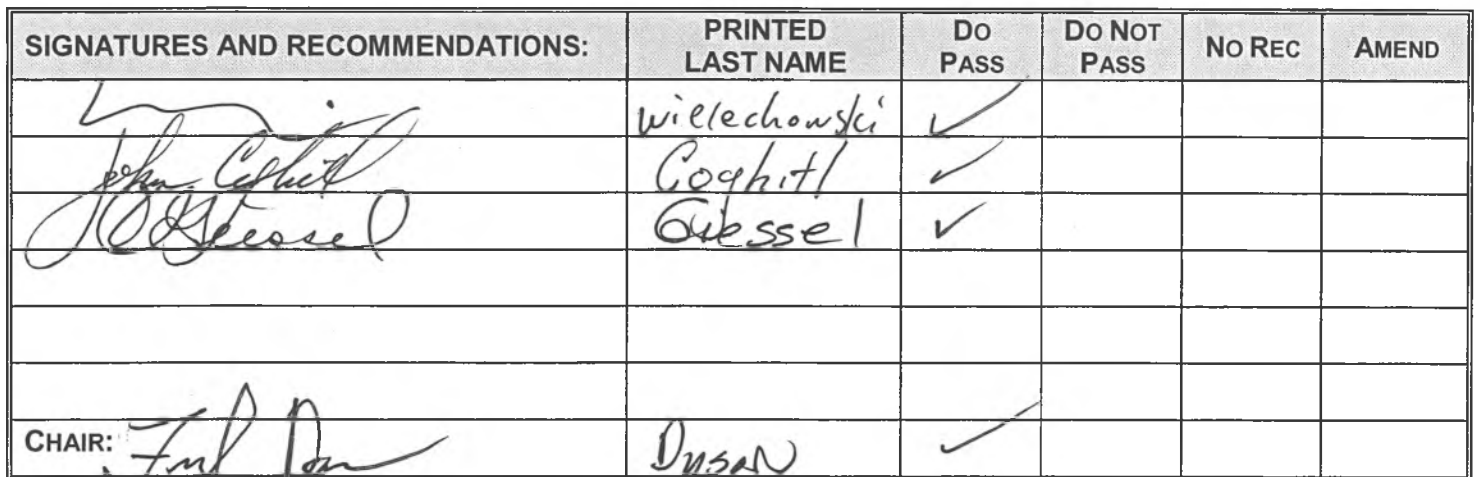 SIGNATURES AND RECOMMENDATIONS: PRINTED LAST NAME DO PASS DO NOT PASS NO REC AMEND
Wielechowski ✓
John Coghill Coghill ✓
Giessel Giessel ✓
CHAIR: Fred Dyson ✓